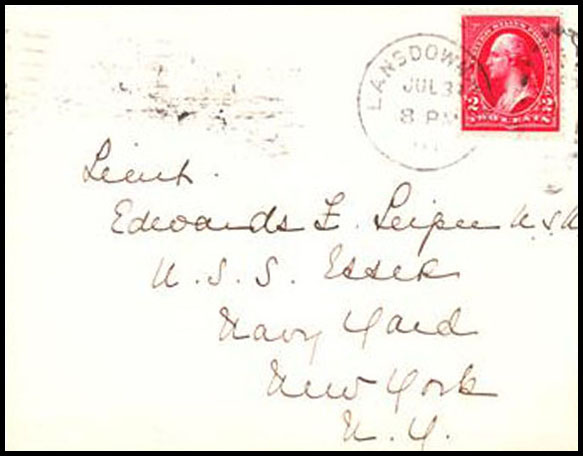 LANSDOWN
JUL 3
8 PM
UNITED STATES POSTAGE
2 2
TWO CENTS
Lieut.
Edwards F. Leiper U.S.N
U. S. S. Essex
Navy Yard
New York
N. Y.